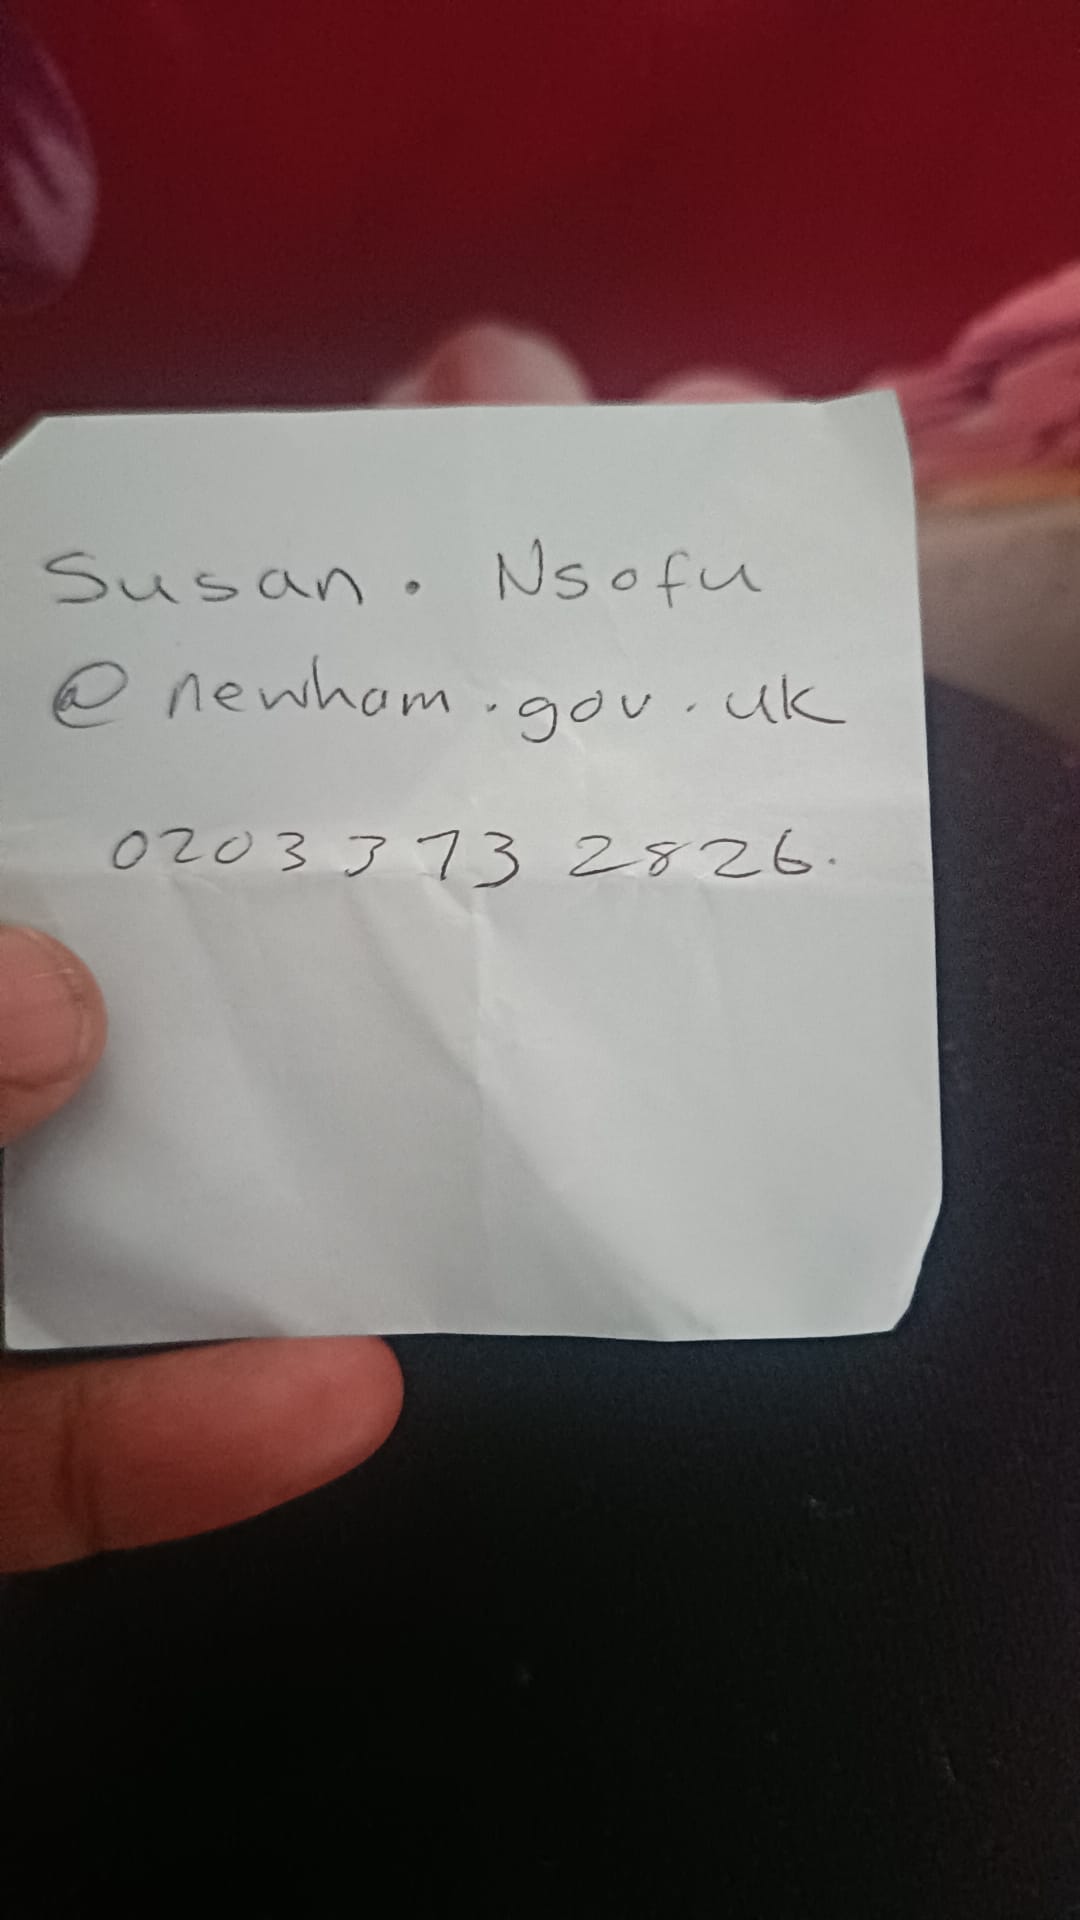 Susan. Nsofu
@newham.gov.uk
0203 373 2826.